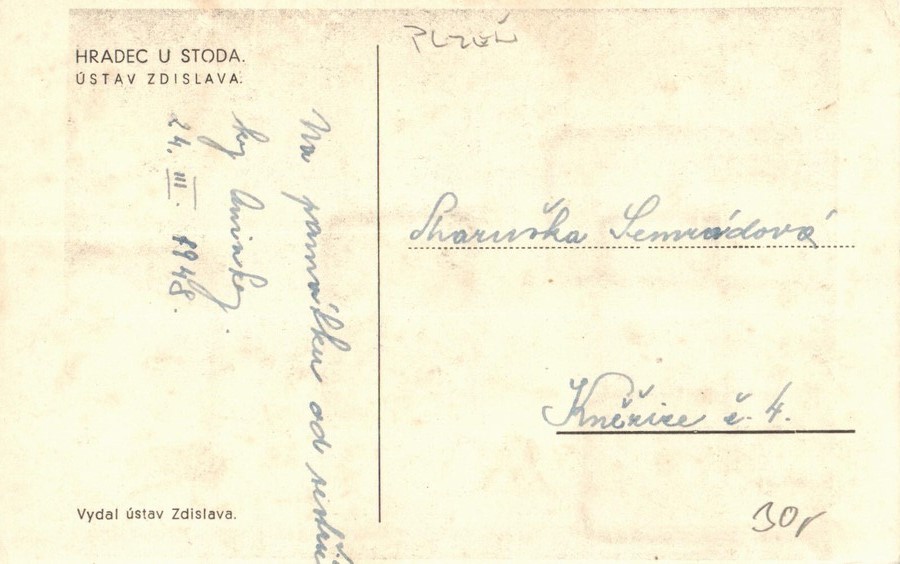 HRADEC U STODA.
ÚSTAV ZDISLAVA.
Na památku od sestřič
ky Aninky.
24. III. 1948.
Vydal ústav Zdislava.
PLZEŇ
Maruška Semrádová
Kněžice č. 4.
30,-